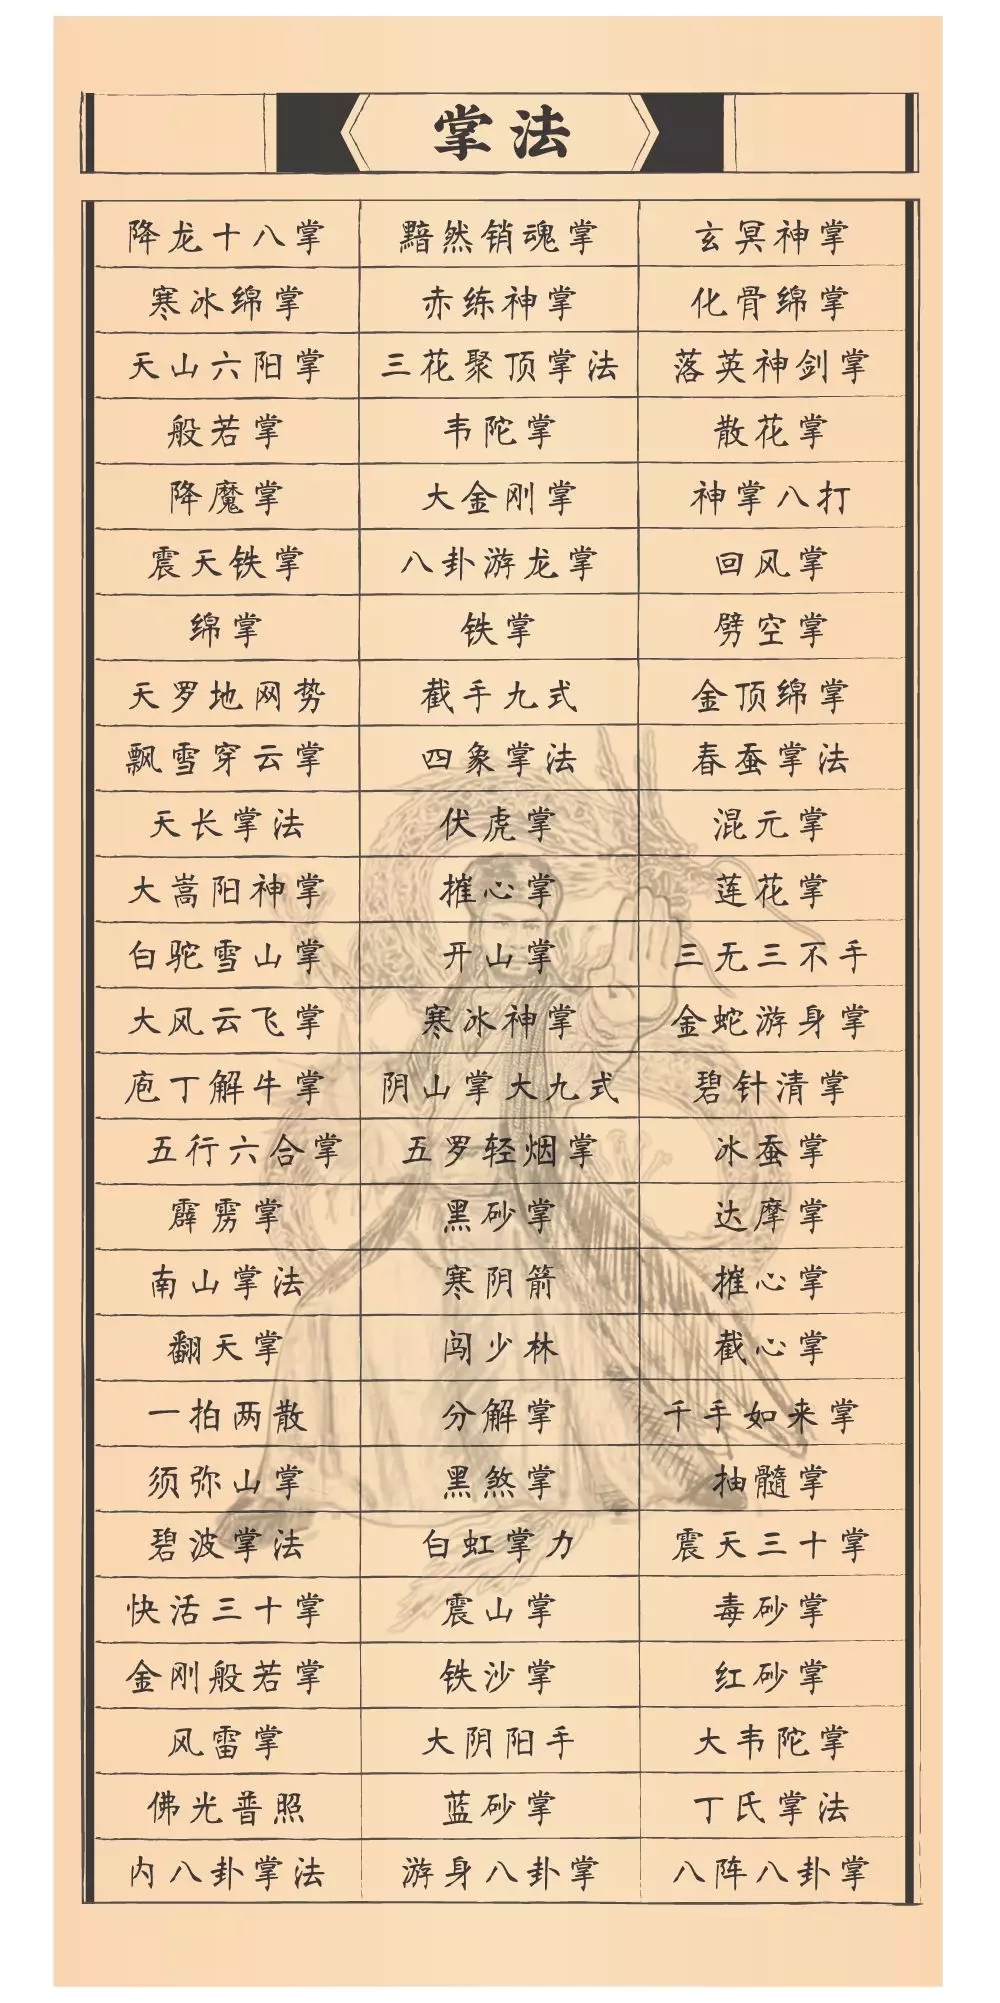 掌法
降龙十八掌 黯然销魂掌 玄冥神掌
寒冰绵掌 赤练神掌 化骨绵掌
天山六阳掌 三花聚顶掌法 落英神剑掌
般若掌 韦陀掌 散花掌
降魔掌 大金刚掌 神掌八打
震天铁掌 八卦游龙掌 回风掌
绵掌 铁掌 劈空掌
天罗地网势 截手九式 金顶绵掌
飘雪穿云掌 四象掌法 春蚕掌法
天长掌法 伏虎掌 混元掌
大嵩阳神掌 摧心掌 莲花掌
白驼雪山掌 开山掌 三无三不手
大风云飞掌 寒冰神掌 金蛇游身掌
庖丁解牛掌 阴山掌大九式 碧针清掌
五行六合掌 五罗轻烟掌 冰蚕掌
霹雳掌 黑砂掌 达摩掌
南山掌法 寒阴箭 摧心掌
翻天掌 闯少林 截心掌
一拍两散 分解掌 千手如来掌
须弥山掌 黑煞掌 抽髓掌
碧波掌法 白虹掌力 震天三十掌
快活三十掌 震山掌 毒砂掌
金刚般若掌 铁沙掌 红砂掌
风雷掌 大阴阳手 大韦陀掌
佛光普照 蓝砂掌 丁氏掌法
内八卦掌法 游身八卦掌 八阵八卦掌